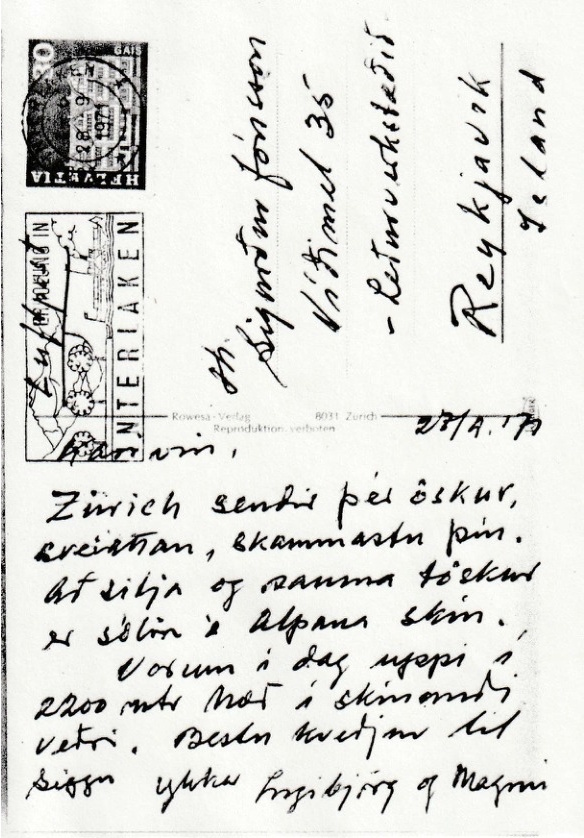 30
GAIS
28.9
1971
HELVETIA
INTERLAKEN
Luftpost
Hr.
Sigurður Jónsson
Víðimel 35
- Leðurverkstæðið
Reykjavik
Island
Rowesa-Verlag 8031 Zürich
Reproduktion verboten
28/9. '71
Kæri vin,
Zürich sendir þér öskur,
sveiattan, skammastu þín.
Að sitja og sauma töskur
er sólin á Alpana skín.
Vorum í dag uppi í
2200 mtr hæð í skínandi
veðri. Bestu kveðjur til
Siggu ykkar Ingibjörg og Magnús